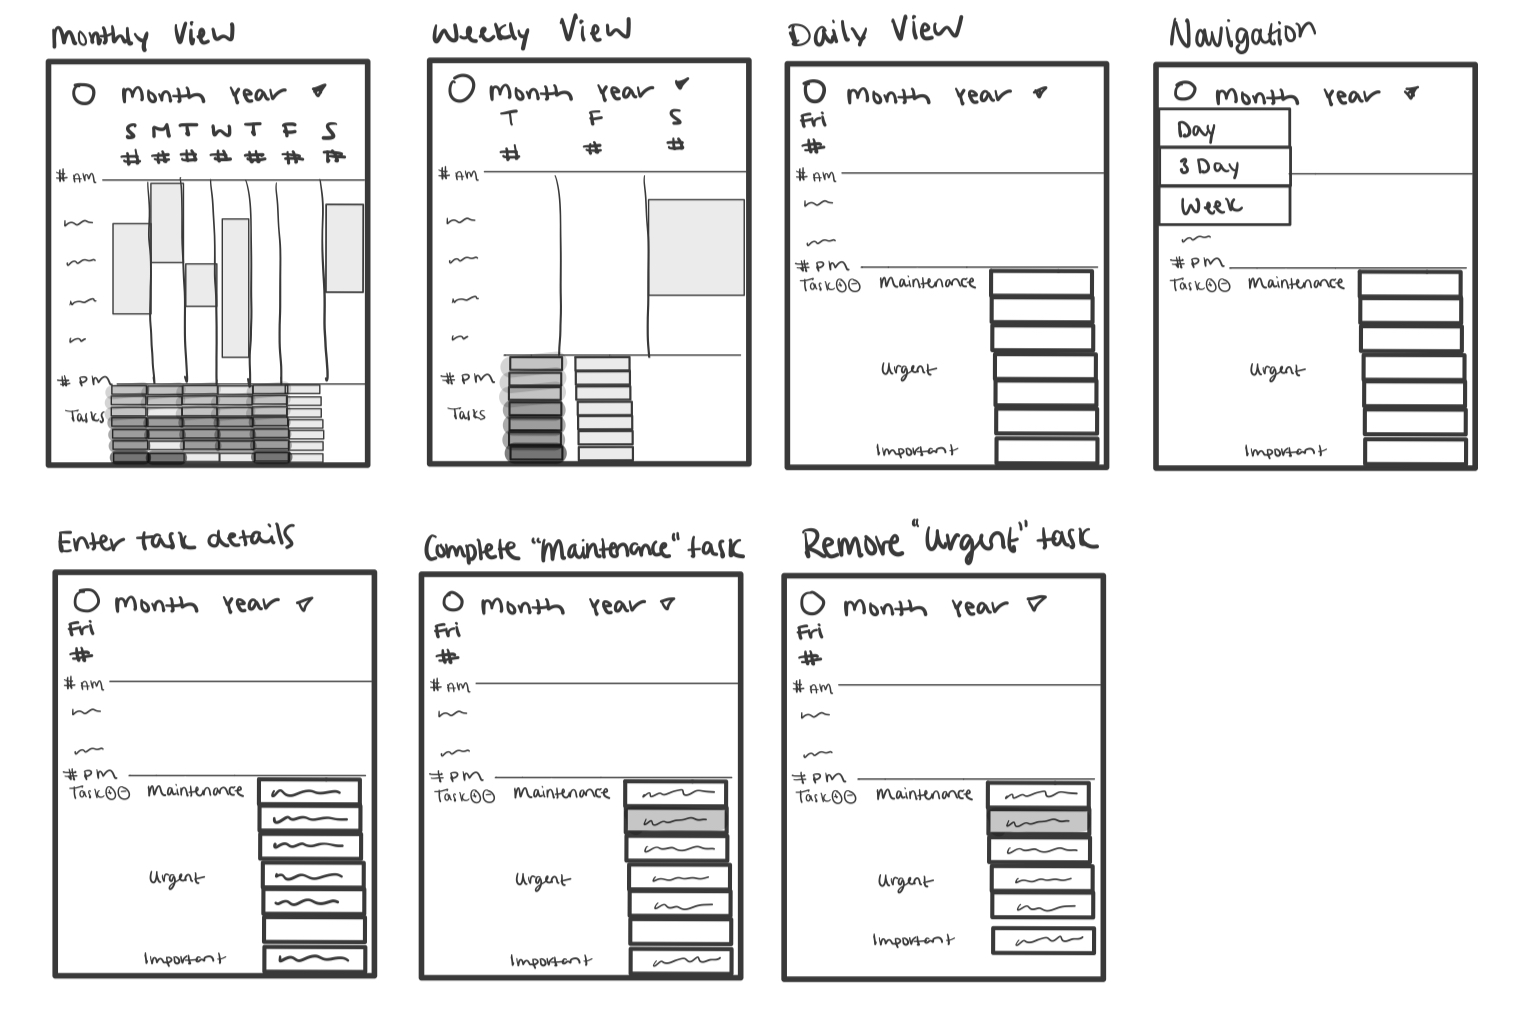 Monthly View
Month Year
S M T W T F S
# # # # # # #
# AM
# PM
Tasks
Weekly View
Month Year
T F S
# # #
# AM
# PM
Tasks
Daily View
Month Year
Fri
#
# AM
# PM
Task Maintenance
Urgent
Important
Navigation
Month Year
Day
3 Day
Week
# PM
Task Maintenance
Urgent
Important
Enter task details
Month Year
Fri
#
# AM
# PM
Task Maintenance
Urgent
Important
Complete "Maintenance" task
Month Year
Fri
#
# AM
# PM
Task Maintenance
Urgent
Important
Remove "Urgent" task
Month Year
Fri
#
# AM
# PM
Task Maintenance
Urgent
Important